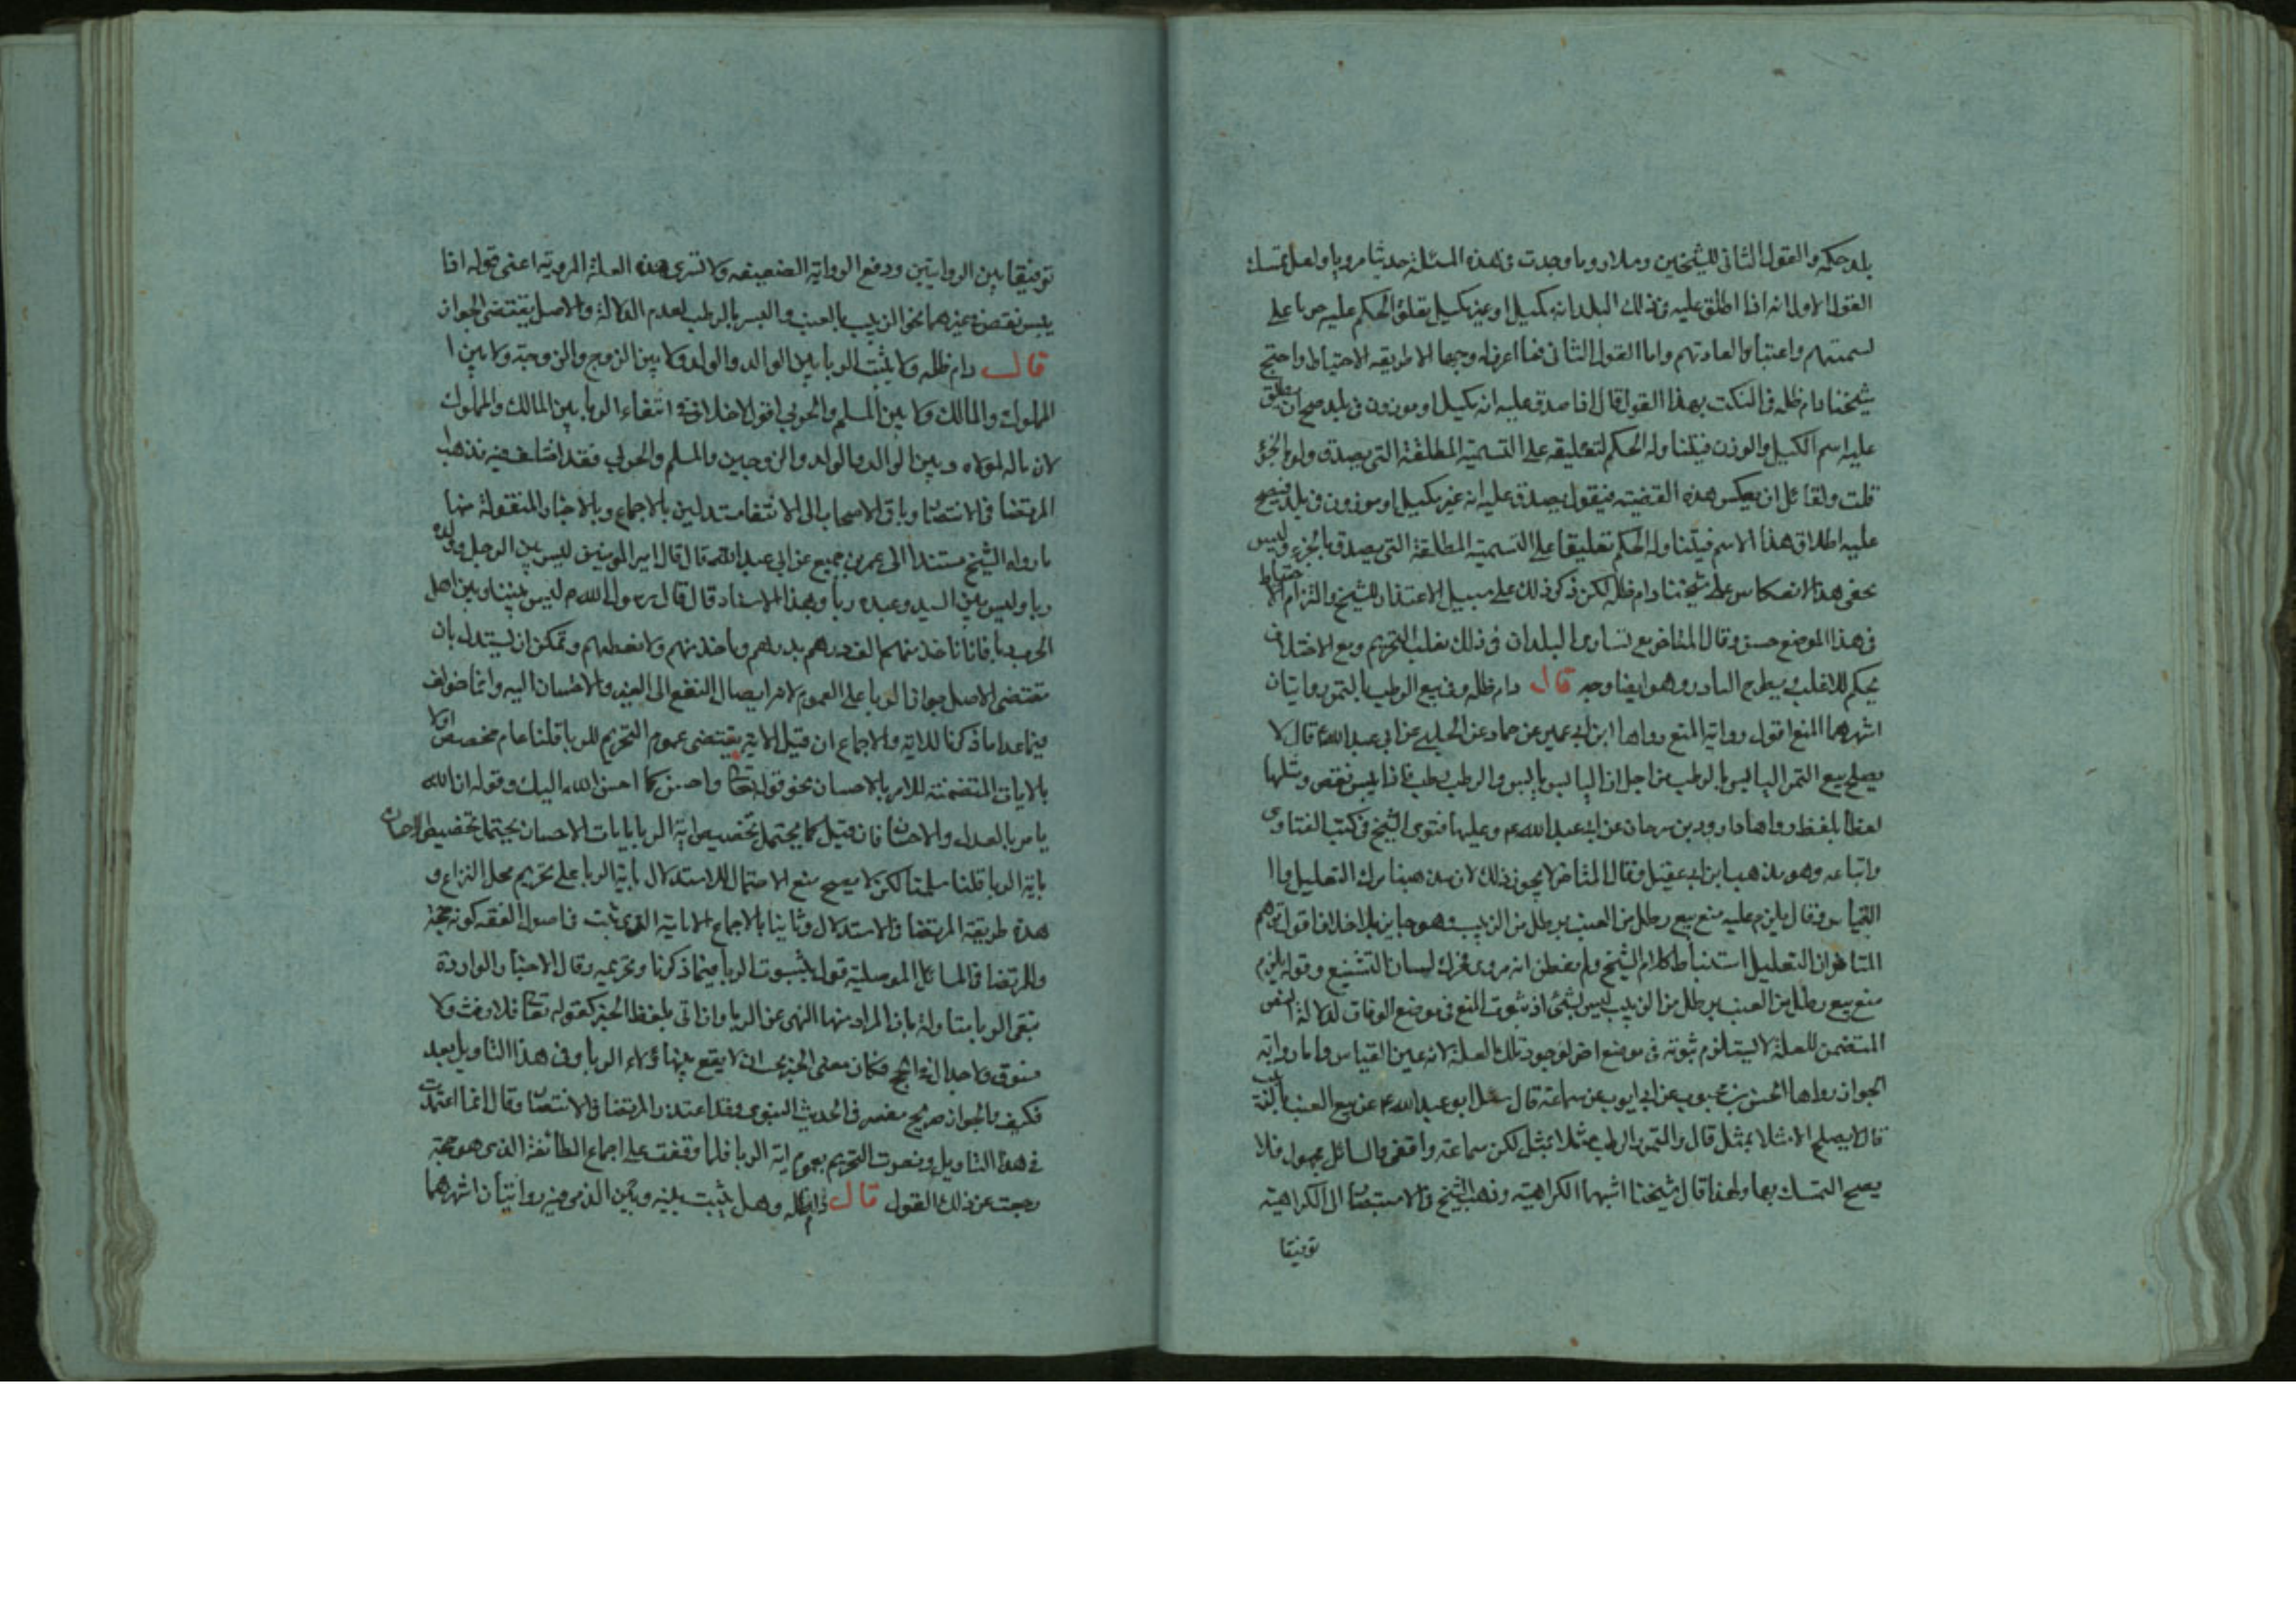 بلد حكمه والقول الثانى للشيخين وسلار وما وجدت فى هذه المسئلة حديثا مرويا ولعل تمسك
القول الاول انه اذا اطلق عليه فى ذلك البلد انه مكيل او غير مكيل تعلق الحكم عليه جريا على
تسميتهم واعتبارا لعادتهم واما القول الثانى فما اعرف له وجها الا طريقه الاحتياط واحتج
شيخنا دام ظله فى النكت بهذا القول قال اذا صدق عليه انه مكيل او موزون فى بلد صح ان يطلق
عليه اسم الكيل والوزن فيتناوله الحكم لتعليقه على التسمية المطلقة التى يصدق ولو بالجزؤ
قلت ولقائل ان يعكس هذه القضيه فيقول يصدق عليه انه غير مكيل او موزون فى بلد فيصح
عليه اطلاق هذا الاسم فيتناوله الحكم تعليقا على التسمية المطلقة التى يصدق بالجزء وليس
يخفى هذا الانعكاس على شيخنا دام ظله لكن ذكر ذلك على سبيل الاعتذار للشيخ والتزام الاحتياط
فى هذا الموضع حسن وقال المتاخر مع تساوى البلدان فى ذلك يغلب التحريم ومع الاختلاف
يحكم للاغلب ويطرح النادر وهو ايضا وجه قال دام ظله وفى بيع الرطب بالتمر روايتان
اشهرهما المنع اقول رواية المنع رواها ابن ابى عمير عن حماد عن الحلبى عن ابى عبد الله ع قال لا
يصلح بيع التمر اليابس بالرطب من اجل ان اليابس يابس والرطب رطب فاذا يبس نقص ومثلها
لفظا بلفظ رواها داود بن سرحان عن ابى عبد الله ع وعليها فتوى الشيخ فى كتب الفتاوى
واتباعه وهو مذهب ابن ابى عقيل وقال المتاخر لا يجوز ذلك لان مذهبنا ترك التعليل وا
القياس وقال يلزم عليه منع بيع رطل من العنب برطل من الزبيب وهو جايز بلا خلاف اقول توهم
المتاخر ان التعليل استنباط كلام الشيخ ولم يفطن انه مروى فحرك لسان التشنيع وقوله يلزم
منع بيع رطل من العنب برطل من الزبيب ليس بشئ اذ ثبوت المنع فى موضع الوفاق لدلالة النص
المتضمن للعلة لا يستلزم ثبوته فى موضع اخر لوجود تلك العلة لانه عين القياس واما رواية
الجواز رواها الحسن بن محبوب عن ابى ايوب عن سماعة قال سئل ابو عبد الله ع عن بيع العنب بالزبيب
قال لا يصلح الا مثلا بمثل قال والتمر بالرطب مثلا بمثل لكن سماعة واقفى والسائل مجهول فلا
يصح التمسك بها ولهذا قال شيخنا اشبهها الكراهية وذهب الشيخ فى الاستبصار الى الكراهية
توفيقا
توفيقا بين الروايتين ودفع الرواية الضعيفه ولا تسرى هذه العلة المروية اعنى قوله اذا
يبس نقص فى غيرهما نحو الزبيب بالعنب والبسر بالرطب لعدم الدلالة والاصل يقتضى الجواز
قال دام ظله ولا يثبت الربا بين الوالد والولد ولا بين الزوج والزوجة ولا بين ا
المملوك والمالك ولا بين المسلم والحربى اقول لا خلاف فى انتفاء الربا بين المالك والمملوك
لان ماله لمولاه وبين الوالد والولد والزوجين والمسلم والحربى فقد اختلف فيه فذهب
المرتضا فى الانتصار وباقى الاصحاب الى الانتفا مستدلين بالاجماع وبالاخبار المنقولة منها
ما رواه الشيخ مستندا الى عمر بن جميع عن ابى عبد الله ع قال قال امير المومنين ليس بين الرجل وولده
ربا وليس بين السيد وعبده ربا وبهذا الاسناد قال قال رسول الله ص ليس بيننا وبين اهل
الحرب ربا فانا ناخذ منهم الف درهم بدرهم وناخذ منهم ولا نعطيهم ويمكن ان يستدل بان
مقتضى الاصل جواز الربا على العموم لانه ايصال النفع الى الغير والاحسان اليه وانما خولف
فيما عدا ما ذكرنا للاية والاجماع ان قيل الاية يقتضى عموم التحريم للربا قلنا عام مخصص اولا
بالايات المتضمنه للامر بالاحسان نحو قوله تعا واحسن كما احسن الله اليك وقوله ان الله
يامر بالعدل والاحسان فان قيل كما يحتمل تخصيص اية الربا بايات الاحسان يحتمل تخصيص الاحسان
باية الربا قلنا سلمنا لكن لا يصح منع الاحتمال للاستدلال باية الربا على تحريم محل النزاع و
هذه طريقة المرتضا فى الاستدلال وثانيا بالاجماع الامامية الذى ثبت فى اصول الفقه كونه حجة
وللمرتضا فى المسائل الموصلية قول بثبوت الربا فيما ذكرنا وتحريمه وقال الاخبار الواردة
بنفى الربا متاولة بان المراد منها النهى عن الربا وان اتى بلفظ الخبر كقوله تعا فلا رفث ولا
فسوق ولا جدال فى الحج فكان معنى الخبر يجب ان لا يقع بين هؤلاء الربا وفى هذا التاويل بعد
فكيف والجواز صريح مفسر فى الحديث النبوى وقد اعتذر المرتضا فى الانتصار وقال انما اعتمدت
فى هذا التاويل ونصرت التحريم بعموم اية الربا فلما وقفت على اجماع الطائفة الذى هو حجة
رجعت عن ذلك القول قال دام ظله وهل يثبت بينه وبين الذمى فيه روايتان اشهرهما